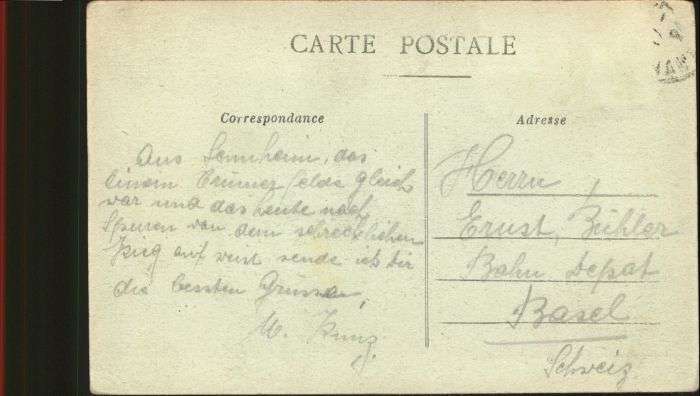 CARTE POSTALE
Correspondance
Aus Sennheim, das
einem Trümmerfelde gleich
war und das heute noch
Spuren von dem schrecklichen
Krieg auf weist sende ich dir
die bessten Grüsse,
Adresse
Herrn
Ernst, Bühler
Bahn Depot
Basel
Schweiz